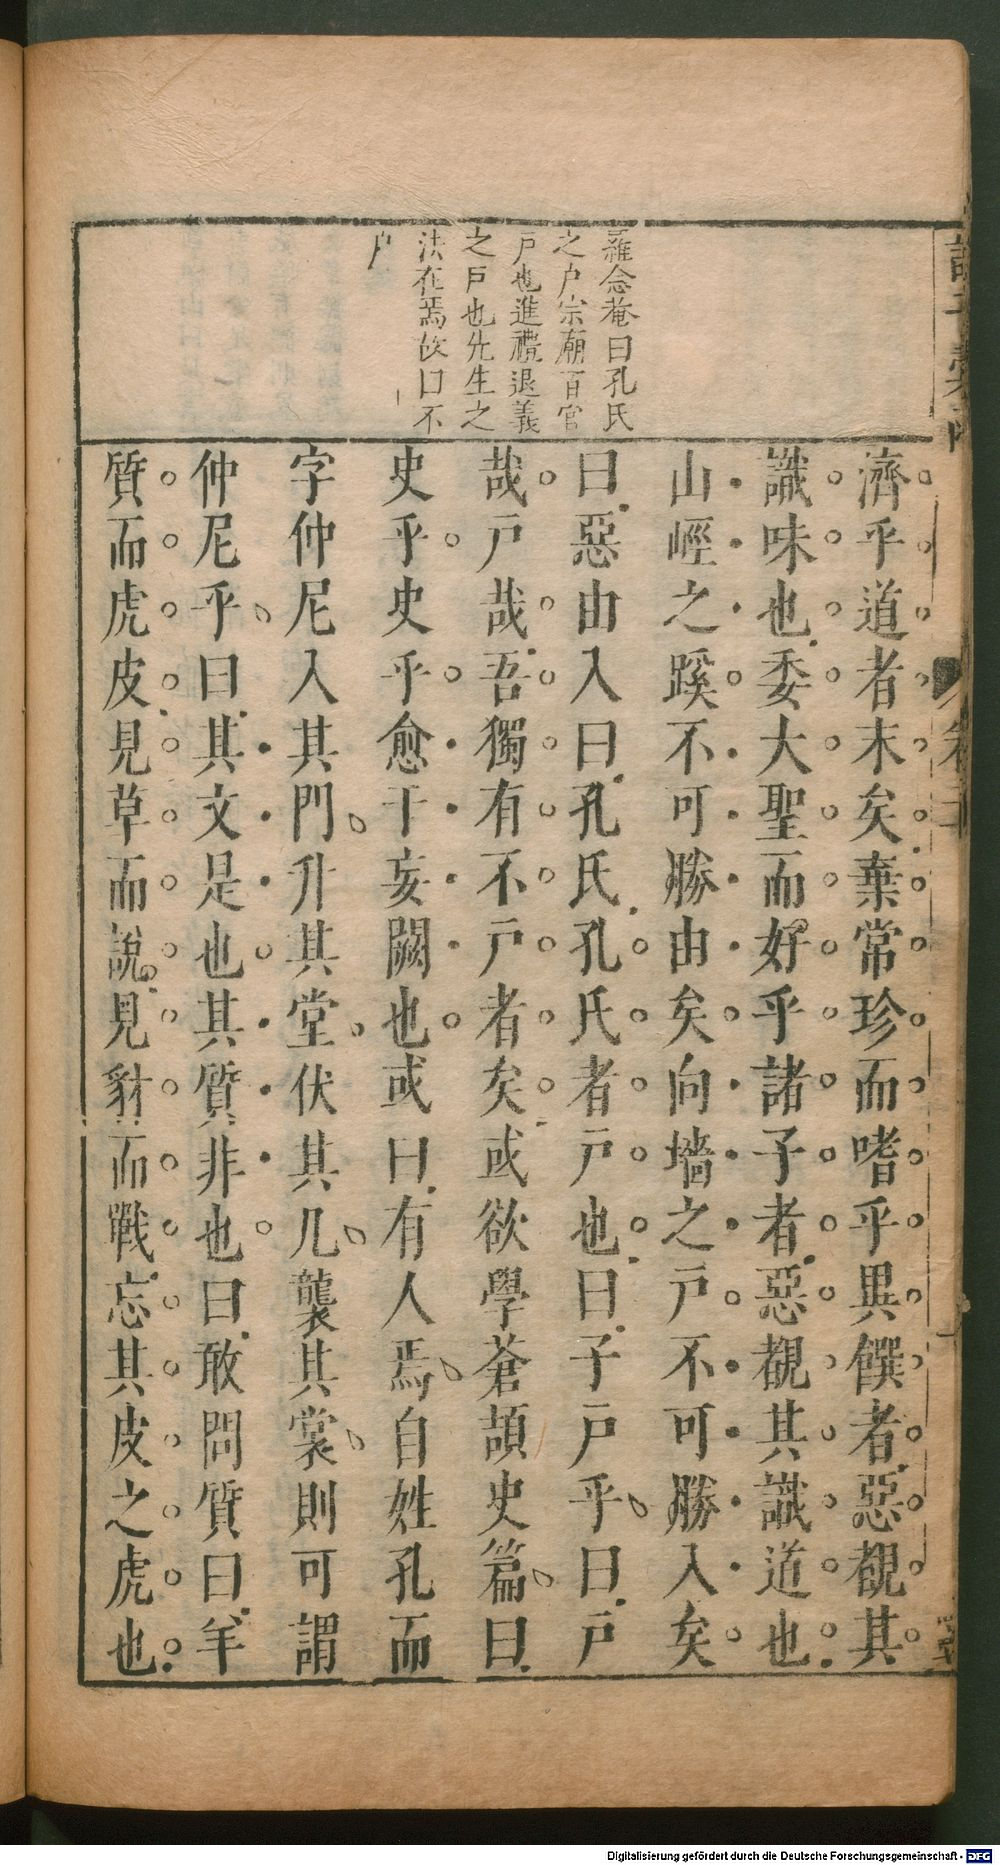 羅念菴曰孔氏
之户宗廟百官
戸也進禮退義
之戸也先生之
法在焉故曰不
户
濟乎道者末矣棄常珍而嗜乎異饌者惡覩其
識味也委大聖而好乎諸子者惡覩其識道也
山峌之蹊不可勝由矣向墻之戸不可勝入矣
曰惡由入曰孔氏孔氏者戸也曰子戸乎曰戸
哉戸哉吾獨有不戸者矣或欲學蒼頡史篇曰
史乎史乎愈于妄闕也或曰有人焉自姓孔而
字仲尼入其門升其堂伏其几襲其裳則可謂
仲尼乎曰其文是也其質非也曰敢問質曰羊
質而虎皮見草而說見豺而戰忘其皮之虎也
Digitalisierung gefördert durch die Deutsche Forschungsgemeinschaft - DFG